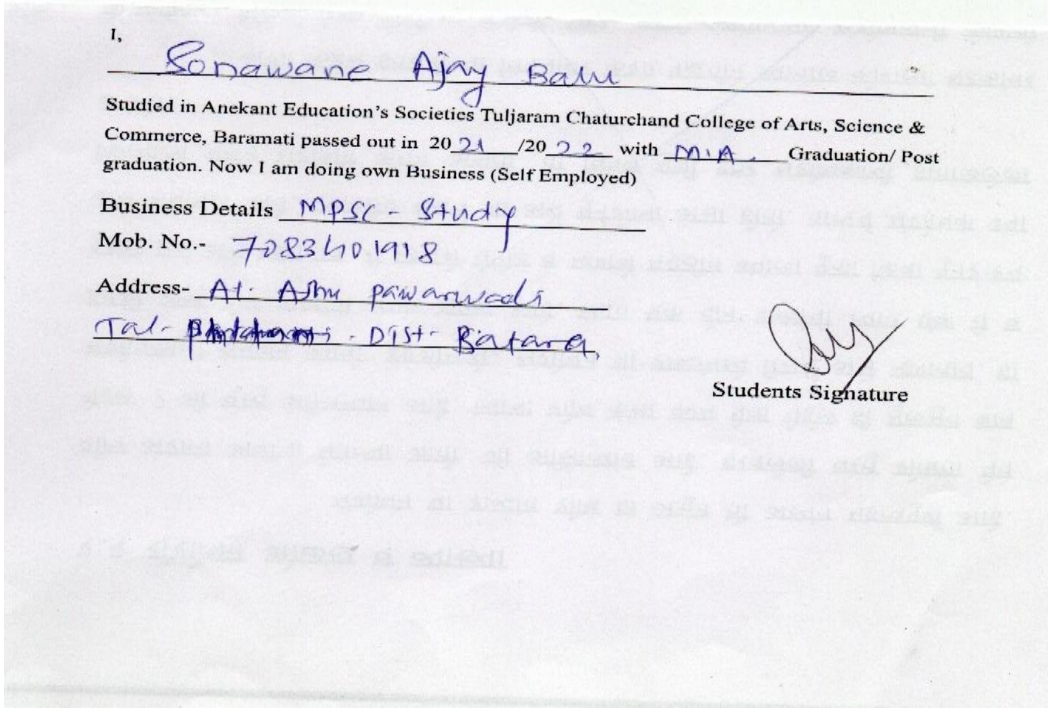 I,
Sonawane Ajay Balu
Studied in Anekant Education's Societies Tuljaram Chaturchand College of Arts, Science &
Commerce, Baramati passed out in 2021/2022 with M.A. Graduation/ Post
graduation. Now I am doing own Business (Self Employed)
Business Details MPSC Study
Mob. No.- 7083401918
Address- At. Ashu pawarwadi
Tal- - Dist- Satara.
Students Signature